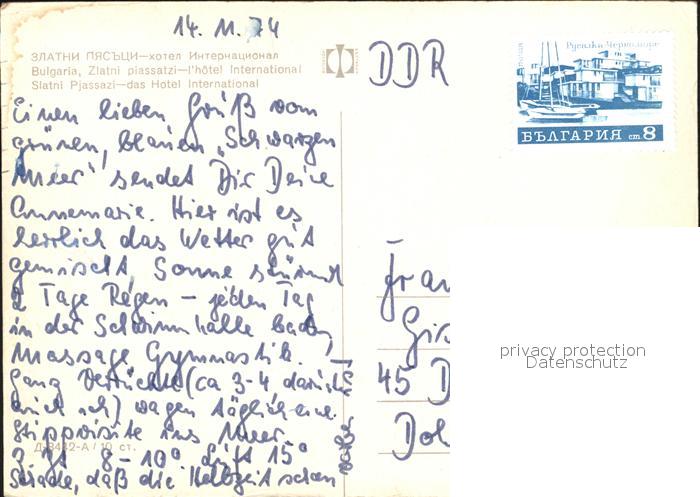 14. 11. 74
ЗЛАТНИ ПЯСЪЦИ—хотел Интернационал
Bulgaria, Zlatni piassatzi—l'hôtel International
Slatni Pjassazi—das Hotel International
Einen lieben Gruß vom
grünen, blauen „Schwarzen
Meer" sendet Dir Deine
Annemarie. Hier ist es
herrlich das Wetter gut
gemischt, Sonne
2 Tage Regen – jeden Tag
in der Schwimmhalle baden,
Massage Gymnastik.
Ganz Verrückte (ca 3-4 darunter
auch ich) wagen täglich eine
Stippvisite ins Meer.
8-10° Luft 15°
Schade, daß die Halbzeit schon
vorbei ist
Д-8442-А / 10 ст.
DDR
Русалка Черноморие
БЪЛГАРИЯ ст. 8
Frau
Gis
45 D
Dol
privacy protection
Datenschutz